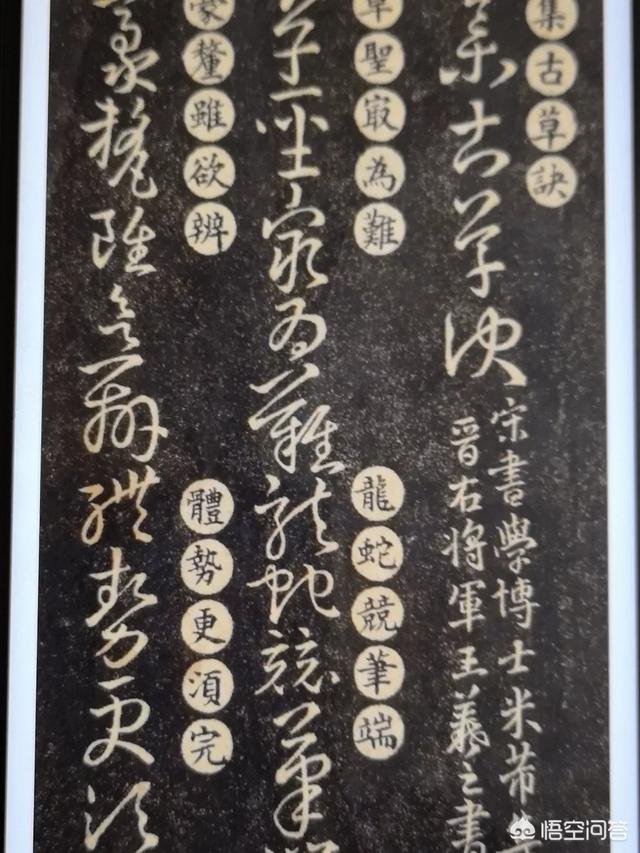 集古草訣
集古草訣
宋書學博士米芾
晉右將軍王羲之書
草聖㝡為難
龍蛇競筆端
草聖㝡為難龍蛇競筆
豪釐雖欲辨
體勢更湏完
豪釐雖欲辨體勢更須
悟空问答